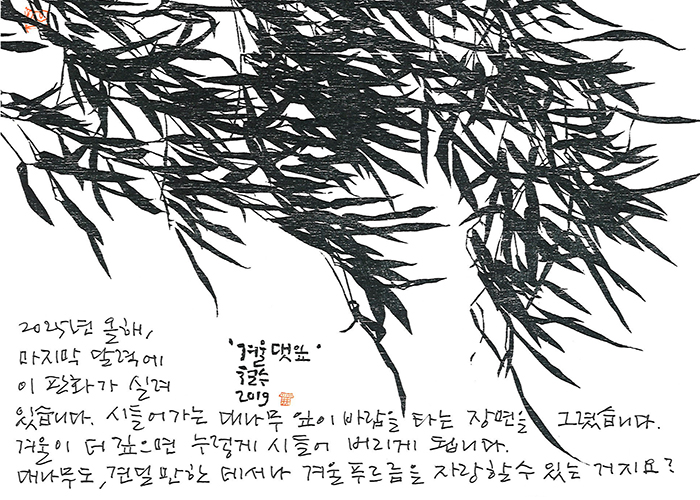 2025년 올해,
마지막 달력에
이 판화가 실려
'겨울 댓잎'
철수
2019
있습니다. 시들어가는 대나무 잎이 바람을 타는 장면을 그렸습니다.
겨울이 더 깊으면 누렇게 시들어 버리게 됩니다.
대나무도, 견딜만한 데서나 겨울 푸르름을 자랑할 수 있는 거지요?